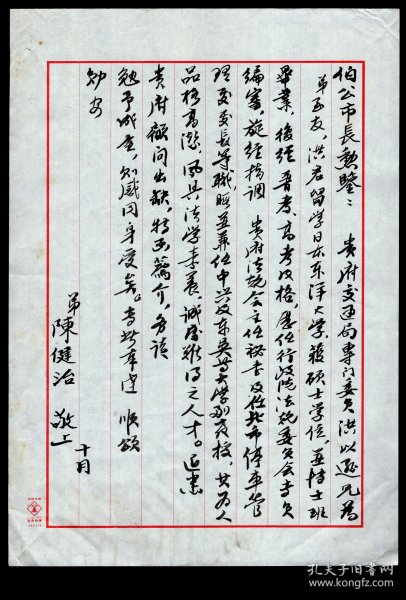 伯公市長勳鑒：　貴府交通局專門委員洪以遜兄為
弟至友，洪君留學日本東洋大學，獲碩士學位，並博士班
畢業，後經普考、高考及格，歷任行政院法規委員會專員
編審，旋經借調　貴府法規會主任秘書及任北市停車管
理處處長等職，暨並兼任中興及東吳等大學副教授，其為人
品格高潔，夙具法學素養，誠屬難得之人才。近悉
貴府顧問出缺，特函薦介，務請
勉予成全，則感同身受矣。專此奉達　順頌
勛安
弟陳健治　敬上
十月
孔夫子旧书网
www.kongfz.com